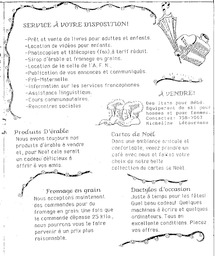 SERVICE À VOTRE DISPOSITION!
-Prêt et vente de livres pour adultes et enfants.
-Location de vidéos pour enfants.
-Photocopies et télécopies (fax) à tarif réduit.
-Sirop d'érable et fromage en grains.
-Location de la salle de l'A.F.N.
-Publication de vos annonces et communiqués
-Pré-Maternelle
-Information sur les services francophones
-Assistance linguistique.
-Cours communautaires.
-Rencontres sociales
À VENDRE!
Produits D'érable
Nous avons toujours nos
produits d'érable à vendre
et, pour Noël cela serait
un cadeau délicieux à
offrir à vos amis.
Cartes de Noël
Dans une ambiance amicale et
confortable, venez prendre un
café avec nous et faites votre
choix de notre belle
collection de cartes de Noël
Fromage en grain
Nous acceptons maintenant
les commandes pour du
fromage en grain. Une fois que
la commande dépasse 25 kilo,
nous pourrons vous le faire
parvenir à un prix plus
raisonnable.
Dactylos d'occasion
Juste à temps pour les fêtes!
Quel beau cadeau! Quelques
machines à écrire et quelques
ordinateurs. Tous en
excellentes conditions. Placez
vos offres.